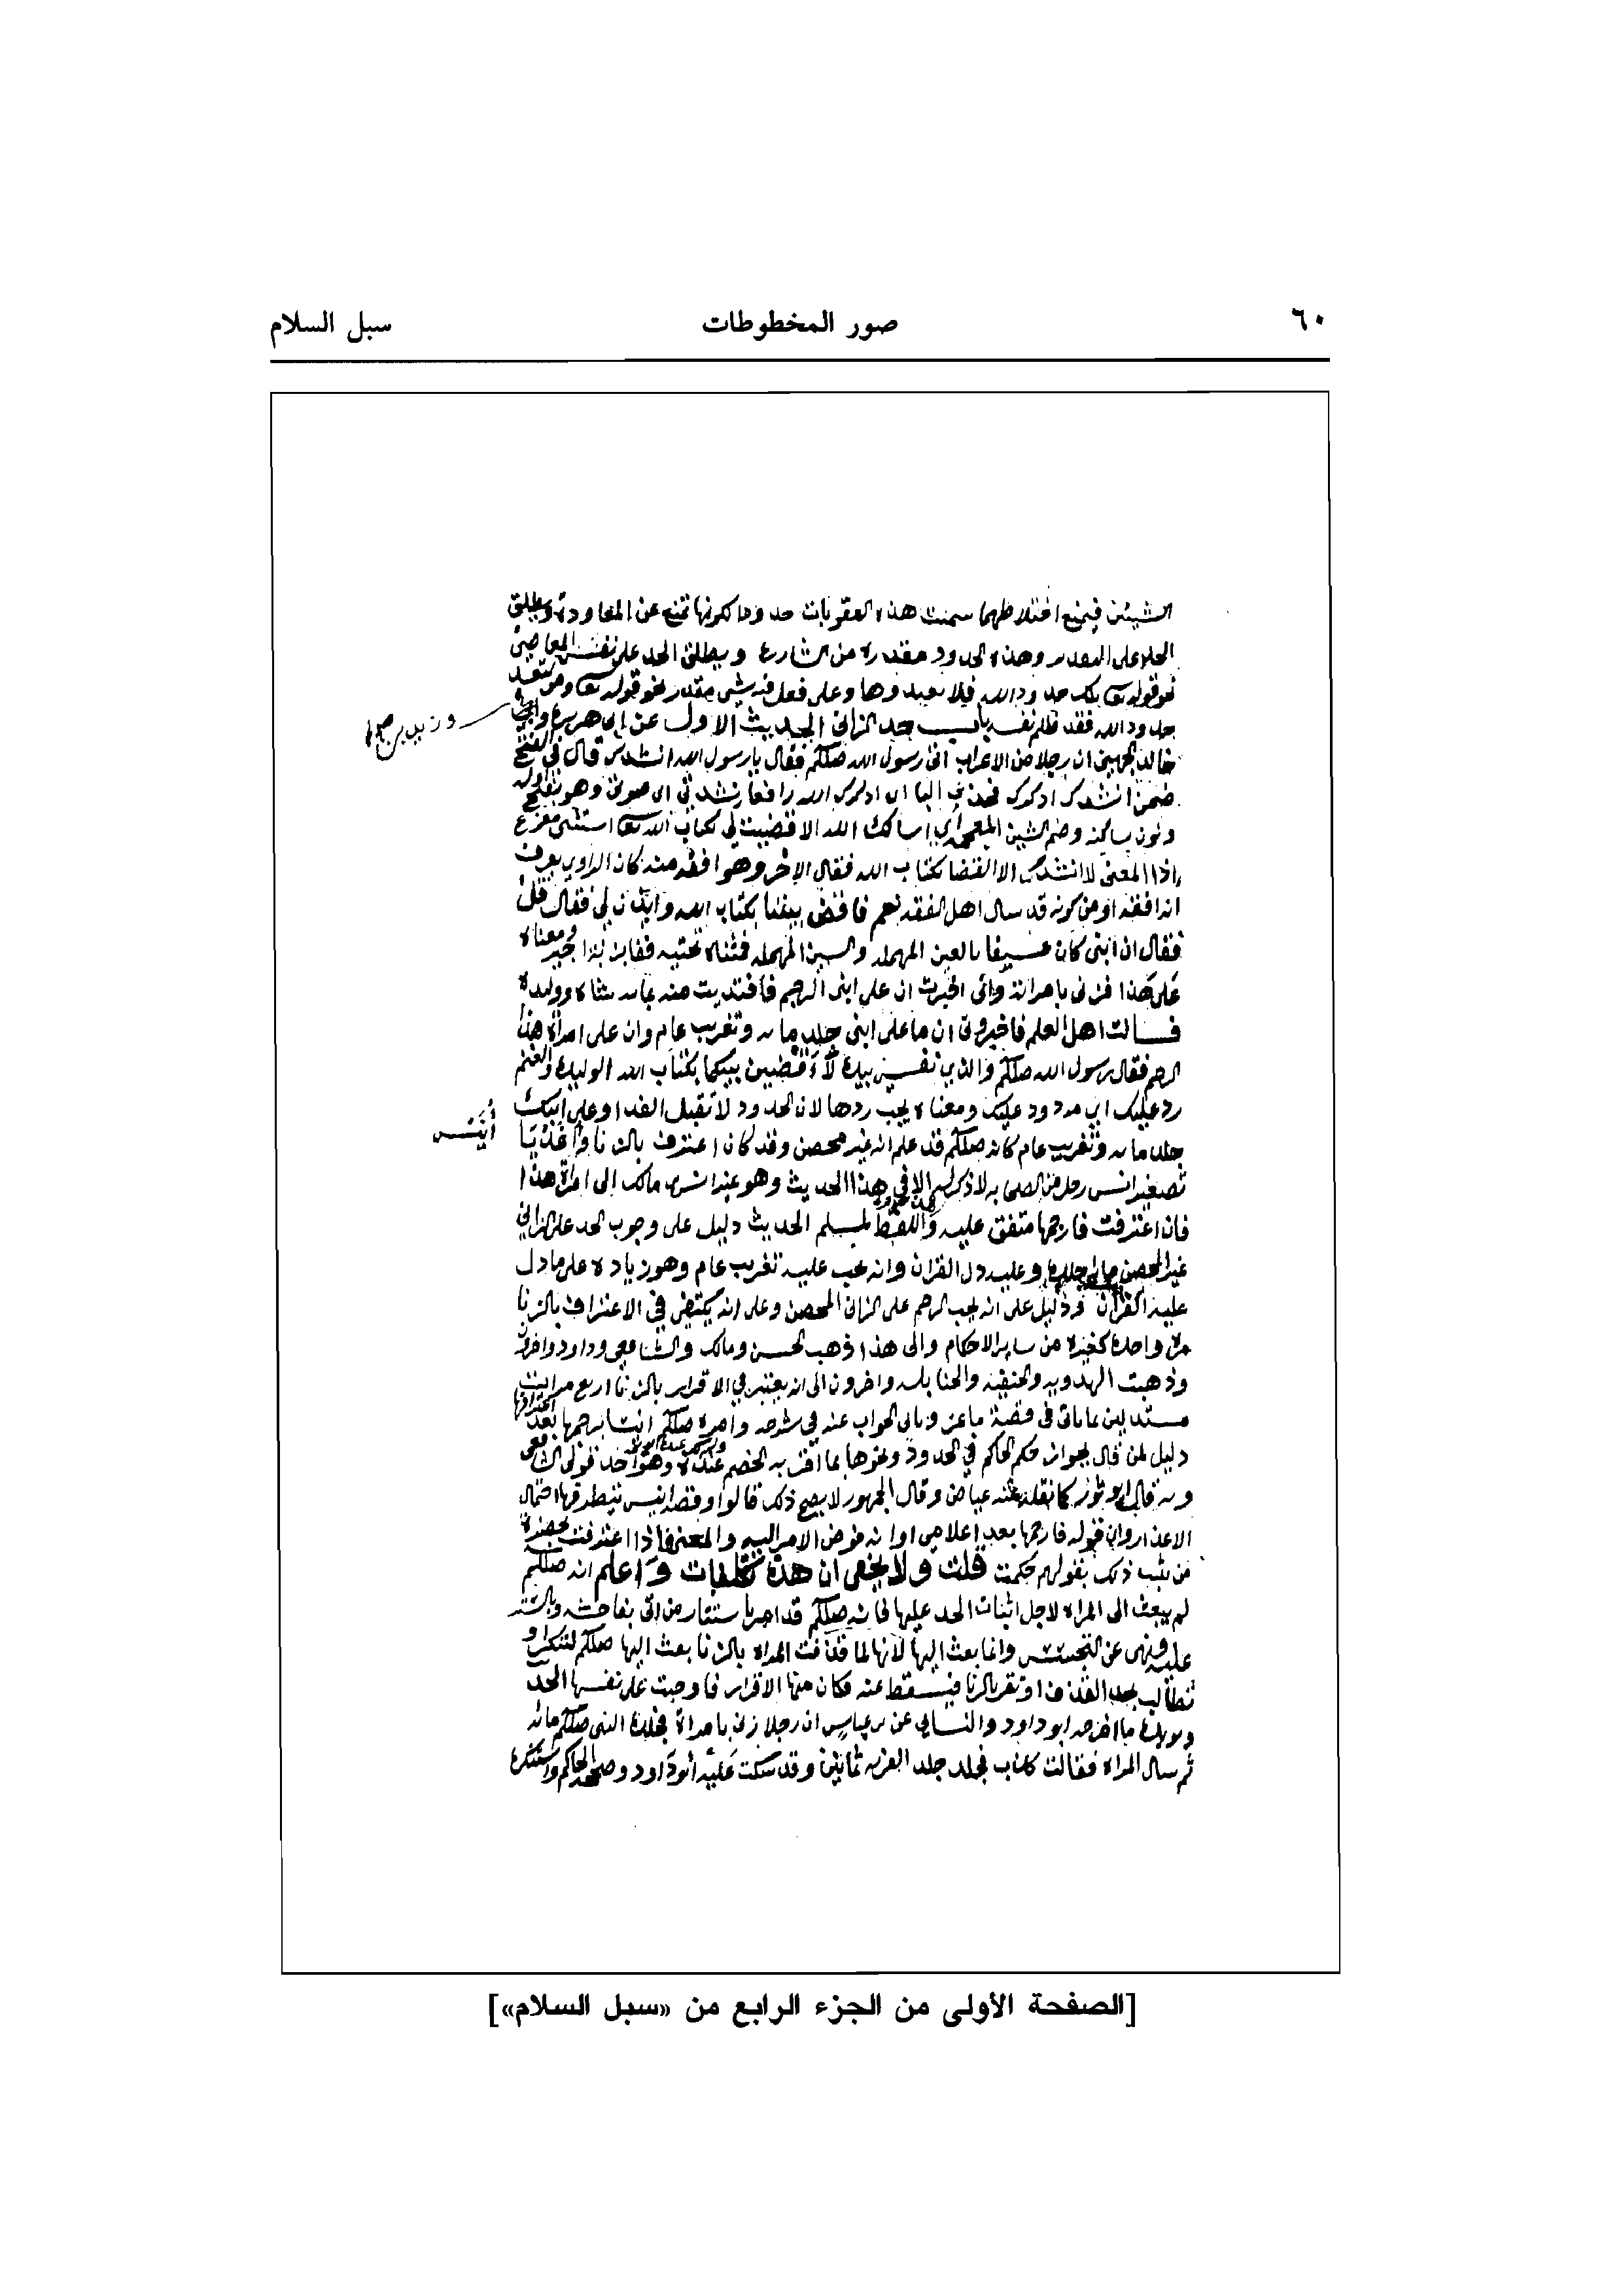 ٦٠ صور المخطوطات سبل السلام
الشيئن فيمنع اختلاطهما سميت هذه العقوبات حدودا لكونها تمنع عن المعاودة ويطلق
الحد على التقدير وهذه الحدود مقدرة من الشارع ويطلق الحد على نفس المعاصي
نحو قوله تعا تلك حدود الله فلا تقربوها وعلى فعل فيه شي مقدر نحو قوله تعا ومن يتعد
حدود الله فقد ظلم نفسه باب حد الزاني الحديث الاول عن ابي هريرة
وزيد بن
خالد الجهني ان رجلا من الاعراب اتى رسول الله صللم فقال يا رسول الله انشدك قال في الفتح
ضمن انشدك اذكرك فحذف البا اي اذكرك الله رافعا نشدتي اي صوتي وهو بفتح اوله
ونون ساكنة وضم الشين المعجمة أي اسالك الله الا قضيت لي بكتاب الله تعا استثنى مفرغ
اذ المعنى لا انشدك الا القضا بكتاب الله فقال الاخر وهو افقه منه كان الراوي يعرف
انه افقه او من كونه قد سال اهل الفقه نعم فاقض بيننا بكتاب الله وايذن لي فقال قل
فقال ان ابني كان عسيفا بالعين المهملة والسين المهملة فمثناة تحتية ففا
على هذا فزنى بامراته واني اخبرت ان على ابني الرجم فافتديت منه بماية شاة ووليدة
فسالت اهل العلم فاخبروني ان ما على ابني جلد ماية وتغريب عام وان على امراة هذا
الرجم فقال رسول الله صللم والذي نفسي بيده لأقضين بينكما بكتاب الله الوليدة والغنم
رد عليك اي مردود عليك ومعناه يجب ردها لان الحدود لا تقبل الفدا وعلى ابنك
جلد ماية وتغريب عام كانه صللم قد علم انه غير محصن وقد كان اعترف بالزنا واغد يا
أُنَيْس
تصغير انس رجل من الصحابه لا ذكر له الا في هذا الحديث الى امراة هذا
فان اعترفت فارجمها متفق عليه واللفظ لمسلم الحديث دليل على وجوب الحد على الزاني
غير المحصن وعليه دل القران وانه يجب عليه تغريب عام وهو زيادة على ما دل
عليه القرآن ودليل على انه يجب الرجم على الزاني المحصن وعلى انه يكتفى في الاعتراف بالزنا
مرة واحدة كغيره من ساير الاحكام والى هذا ذهب الحسن ومالك والشافعي وداود واخرون
وذهبت الهدويه والحنفيه والحنابله واخرون الى انه يعتبر في الاقرار بالزنا اربع مرات
مستدلين بما ياتي في قصة ماعز وياتي الجواب عنه في شرحه وامره صللم انيسا برجمها بعد اعترافها
دليل لمن قال بجواز حكم الحاكم في الحدود ونحوها بما اقر به الخصم عنده وهو احد قولي الشافعي
وبه قال ابو ثور كما نقله عنه عياض وقال الجمهور لا يصح ذلك قالوا وقصة انيس يتطرقها احتمال
الاعذار وان قوله فارجمها بعد اعلامي او انه فوض الامر اليه والمعنى فاذا اعترفت بحضرة
من يثبت ذلك بقولهم حكمت قلت ولا يخفى ان هذه تكلفات واعلم انه صللم
لم يبعث الى المراة لاجل اثبات الحد عليها فانه صللم قد امر باستتار من اتى بفاحشة وبالستر
عليه ونهى عن التجسس وانما بعث اليها لأنها لما قذفت المراة بالزنا بعث اليها صللم لتنكر او
تطالب بحد القذف او تقر بالزنا فيسقط عنه فكان منها الاقرار فاوجبت على نفسها الحد
ويويده ما اخرجه ابو داود والنسائي عن ابن عباس ان رجلا زنى بامراة فجلده النبي صللم مائة
ثم سال المراة فقالت كذب فجلد جلد الفرية ثمانين وقد سكت عليه أبو داود وصححه الحاكم واستنكره
[الصفحة الأولى من الجزء الرابع من «سبل السلام»]